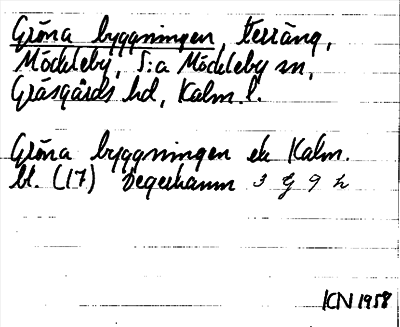 Gröna byggningen, terräng,
Möckleby, S:a Möckleby sn,
Gräsgårds hd, Kalm. l.
Gröna byggningen ek Kalm.
bl. (17) Degerhamn 3 G 9 h
KN 1958